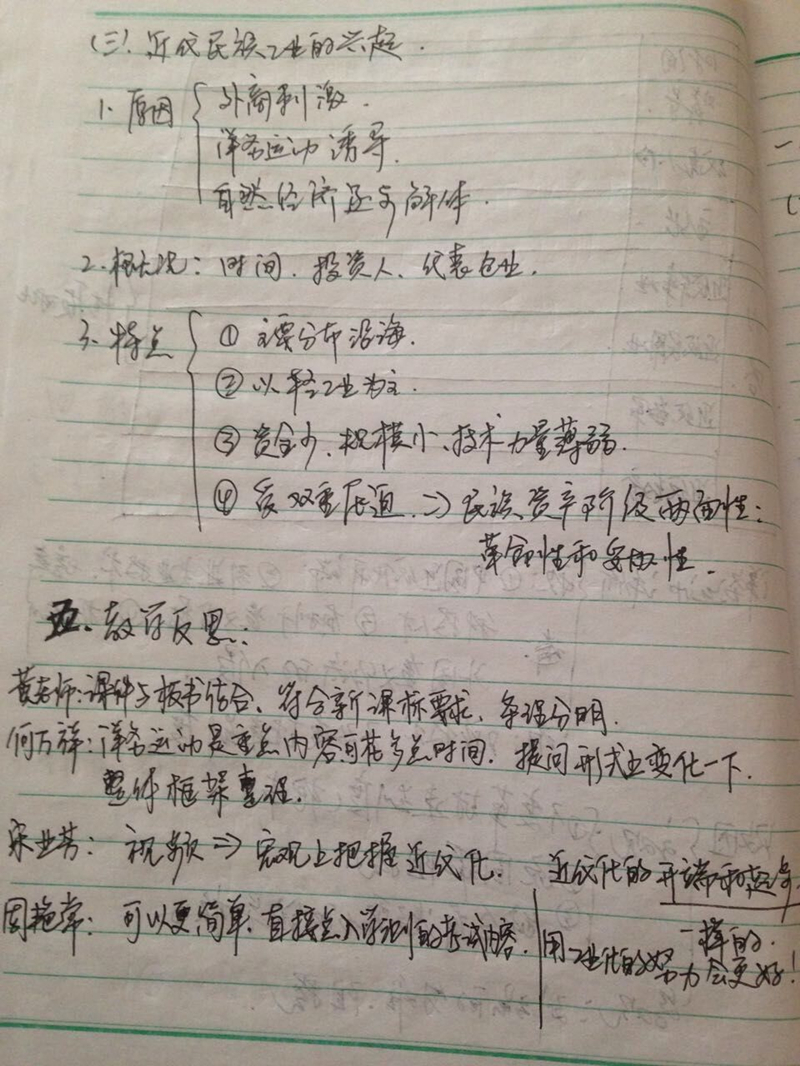 (三). 近代民族工业的兴起.
1. 原因 { 外商刺激.
洋务运动诱导.
自然经济逐步解体.
2. 概况: 时间、投资人、代表企业.
3. 特点 { ① 主要分布沿海.
② 以轻工业为主.
③ 资金少、规模小、技术力量薄弱.
④ 受双重压迫 => 民族资产阶级两面性:
革命性和妥协性.
五. 教学反思:
黄老师: 课件与板书结合、符合新课标要求、条理分明.
何万祥: 洋务运动是重点内容可花多点时间. 提问形式上变化一下.
整体框架
宋业芳: 视频 => 宏观上把握近代化. 近代化的开端和起步
一样的.
周艳常: 可以更简单、直接点入学测的考试内容.
用工业化的 努力会更好!